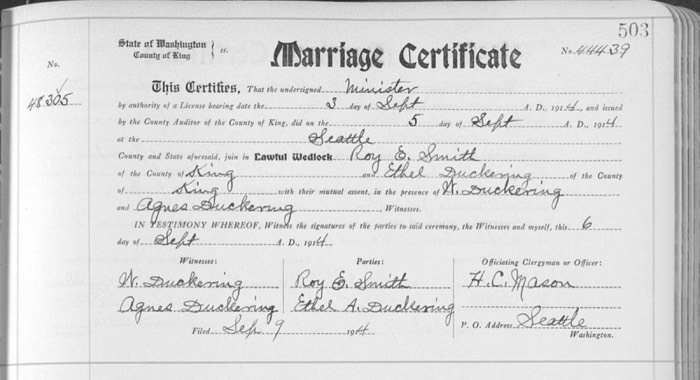 503
State of Washington
County of King } ss.
Marriage Certificate
No. 44439
No.
48305
This Certifies, That the undersigned Minister
by authority of a License bearing date the 3 day of Sept A. D., 1914, and issued
by the County Auditor of the County of King, did on the 5 day of Sept A. D., 1914
at the Seattle
County and State aforesaid, join in Lawful Wedlock Roy E. Smith
of the County of King and Ethel Duckering of the County
of King with their mutual assent, in the presence of W. Duckering
and Agnes Duckering Witnesses.
IN TESTIMONY WHEREOF, Witness the signatures of the parties to said ceremony, the Witnesses and myself, this 6
day of Sept A. D., 1914.
Witnesses: Parties: Officiating Clergyman or Officer:
W. Duckering Roy E. Smith H. C. Mason
Agnes Duckering Ethel A. Duckering
P. O. Address Seattle
Filed Sep 9 1914 Washington.